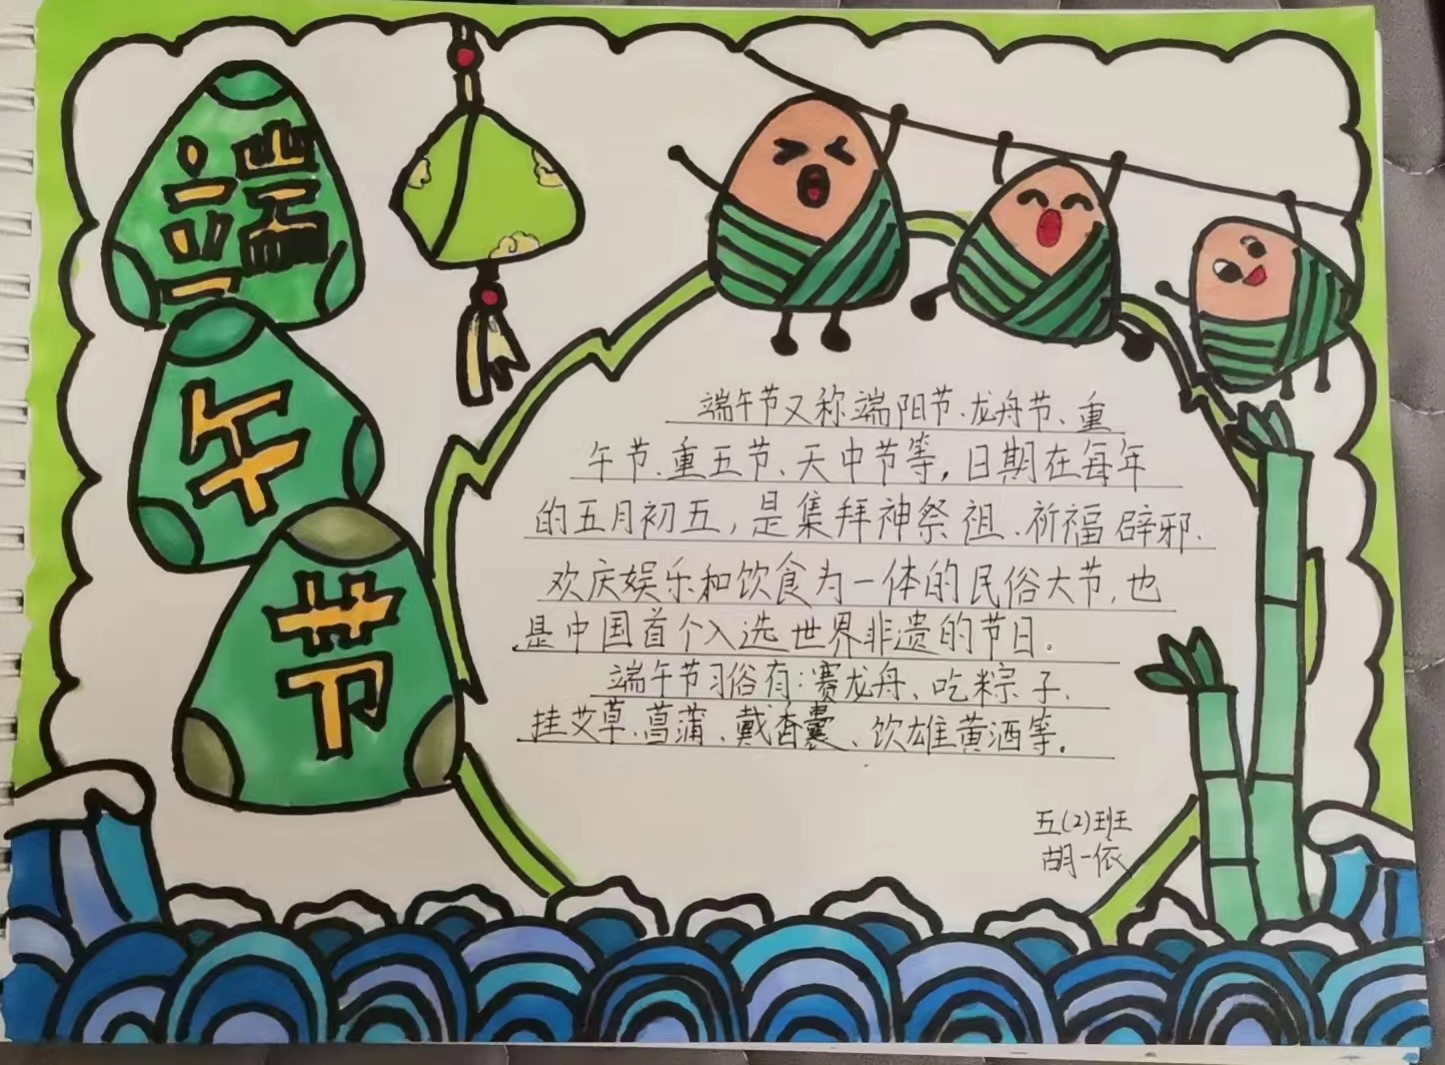 端
午
节
端午节又称端阳节、龙舟节、重
午节、重五节、天中节等，日期在每年
的五月初五，是集拜神祭祖、祈福辟邪、
欢庆娱乐和饮食为一体的民俗大节，也
是中国首个入选世界非遗的节日。
端午节习俗有：赛龙舟、吃粽子、
挂艾草、菖蒲、戴香囊、饮雄黄酒等。
五(2)班
胡一依